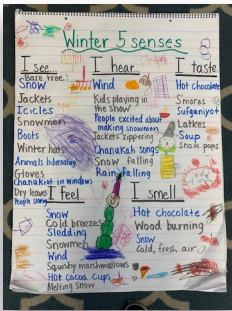 Winter 5 senses
I see...
Bare tree
Snow
Jackets
Icicles
Snowmen
Boots
Winter hats
Animals hibernating
Gloves
Chanukiot in windows
Dry leaves
I hear...
Wind
Kids playing in the snow
People excited about
making snowmen
Jackets zippering
Chanukah songs
Snow falling
Rain falling
I taste
Hot chocolate
Smores
Sufganiyot
Latkes
Soup
Snow pops
I feel
Snow
Cold breezes
Sledding
Snowmen
Wind
Squishy marshmallows
Hot cocoa cups
Melting snow
I smell
Hot chocolate
Wood burning
Snow
Cold, fresh air